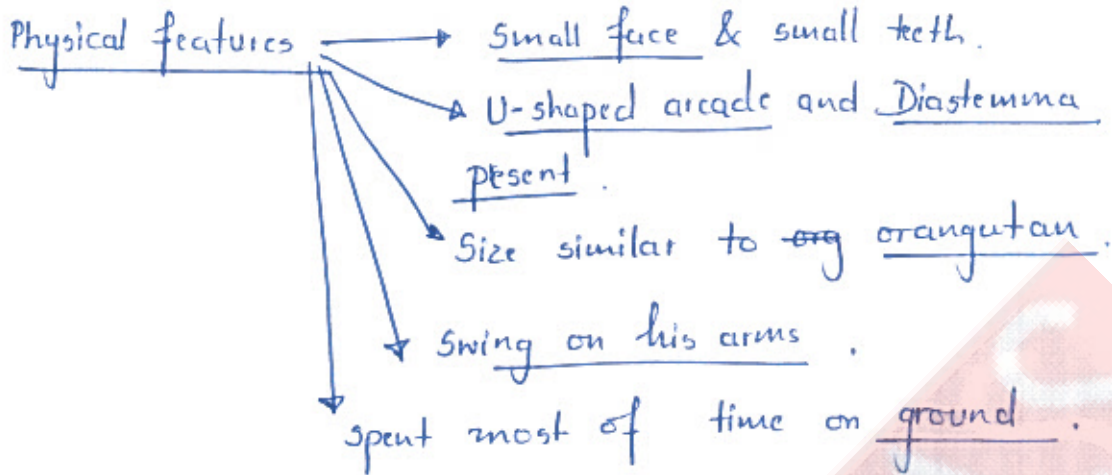 Physical features → Small face & small teeth.
→ U-shaped arcade and Diastemma
present.
→ Size similar to ~~org~~ orangutan.
→ Swing on his arms.
→ spent most of time on ground.